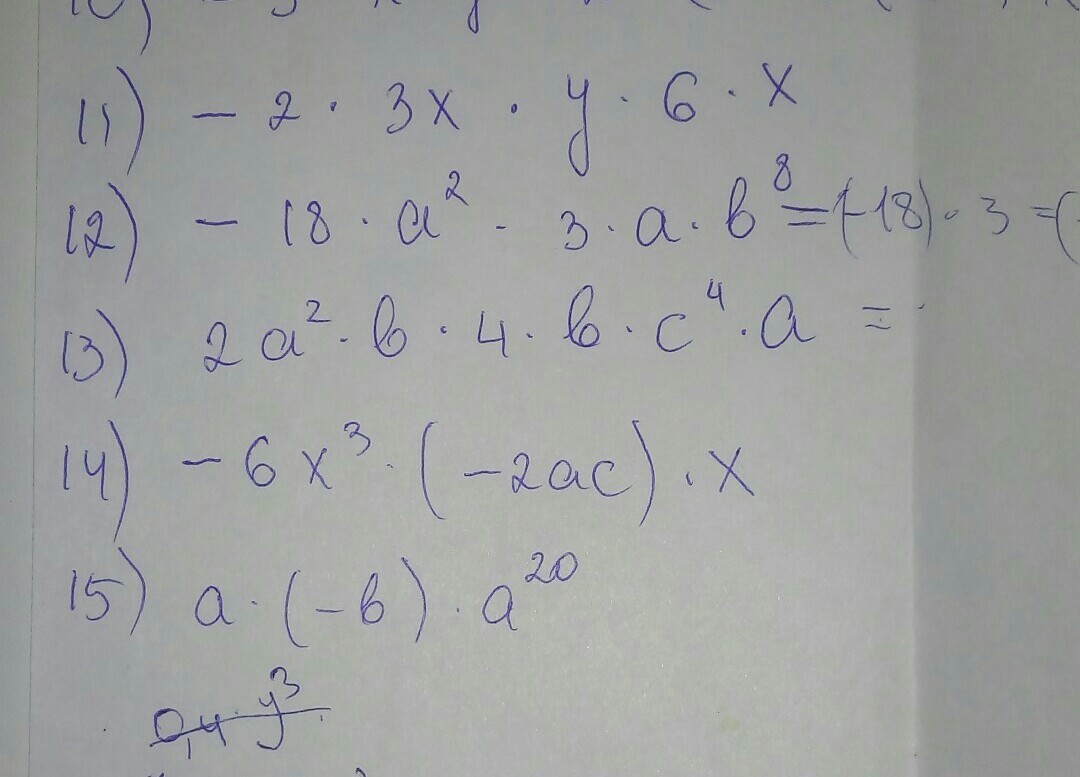 11) - 2 · 3x · y · 6 · x
12) - 18 · a² · 3 · a · b⁸ = (-18) · 3 = (-
13) 2a² · b · 4 · b · c⁴ · a =
14) - 6x³ · (-2ac) · x
15) a · (-b) · a²⁰
0,4 · y³